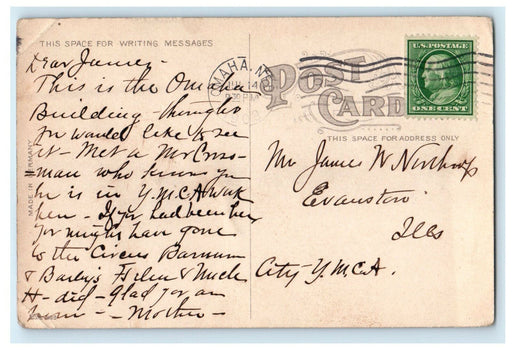 THIS SPACE FOR WRITING MESSAGES
POST
CARD
THIS SPACE FOR ADDRESS ONLY
U.S. POSTAGE
ONE CENT
OMAHA, N
JUL 14
MADE IN GERMANY
Dear James -
This is the Omaha
Building thought
you would like to see
it - Met a Mr Cross-
=man who knows you
he is in Y.M.C.A. work
here - If you had been here
you might have gone
to the Circus Barnum
& Baily's Helen & Uncle
H - did - glad you are
home - - Mother -
Mr James W Northrop
Evanston
Ills
City Y.M.C.A.